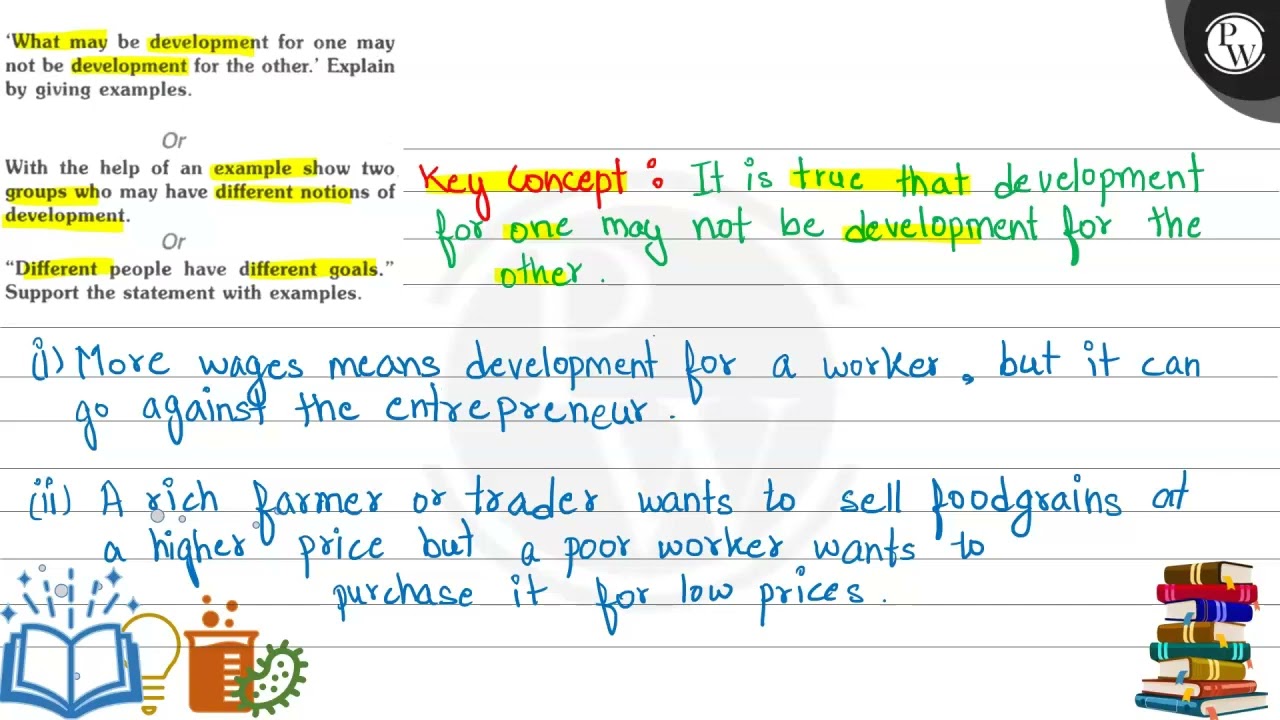 ‘What may be development for one may
not be development for the other.’ Explain
by giving examples.
Or
With the help of an example show two
groups who may have different notions of
development.
Or
“Different people have different goals.”
Support the statement with examples.
PW
Key Concept : It is true that development
for one may not be development for the
other.
(i) More wages means development for a worker, but it can
go against the entrepreneur.
(ii) A rich farmer or trader wants to sell foodgrains at
a higher price but a poor worker wants to
purchase it for low prices.